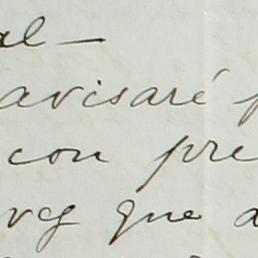 al —
avisaré p
con pre
que a